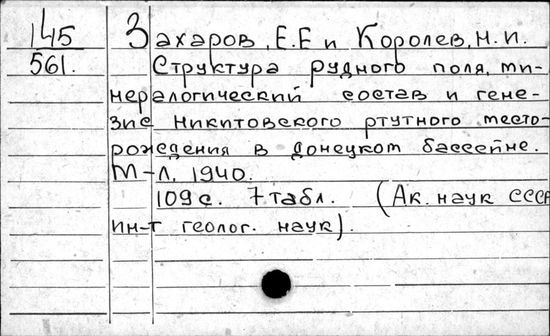 145
561.
Захаров, Е.Е и Королев, Н. И.
Структура рудного поля, ми-
нералогический состав и гене-
зис Никитовского ртутного место-
рождения в Донецком бассейне.
М-Л. 1940.
109 с. 7 табл. (Ак. наук СССР
Ин-т геолог. наук).